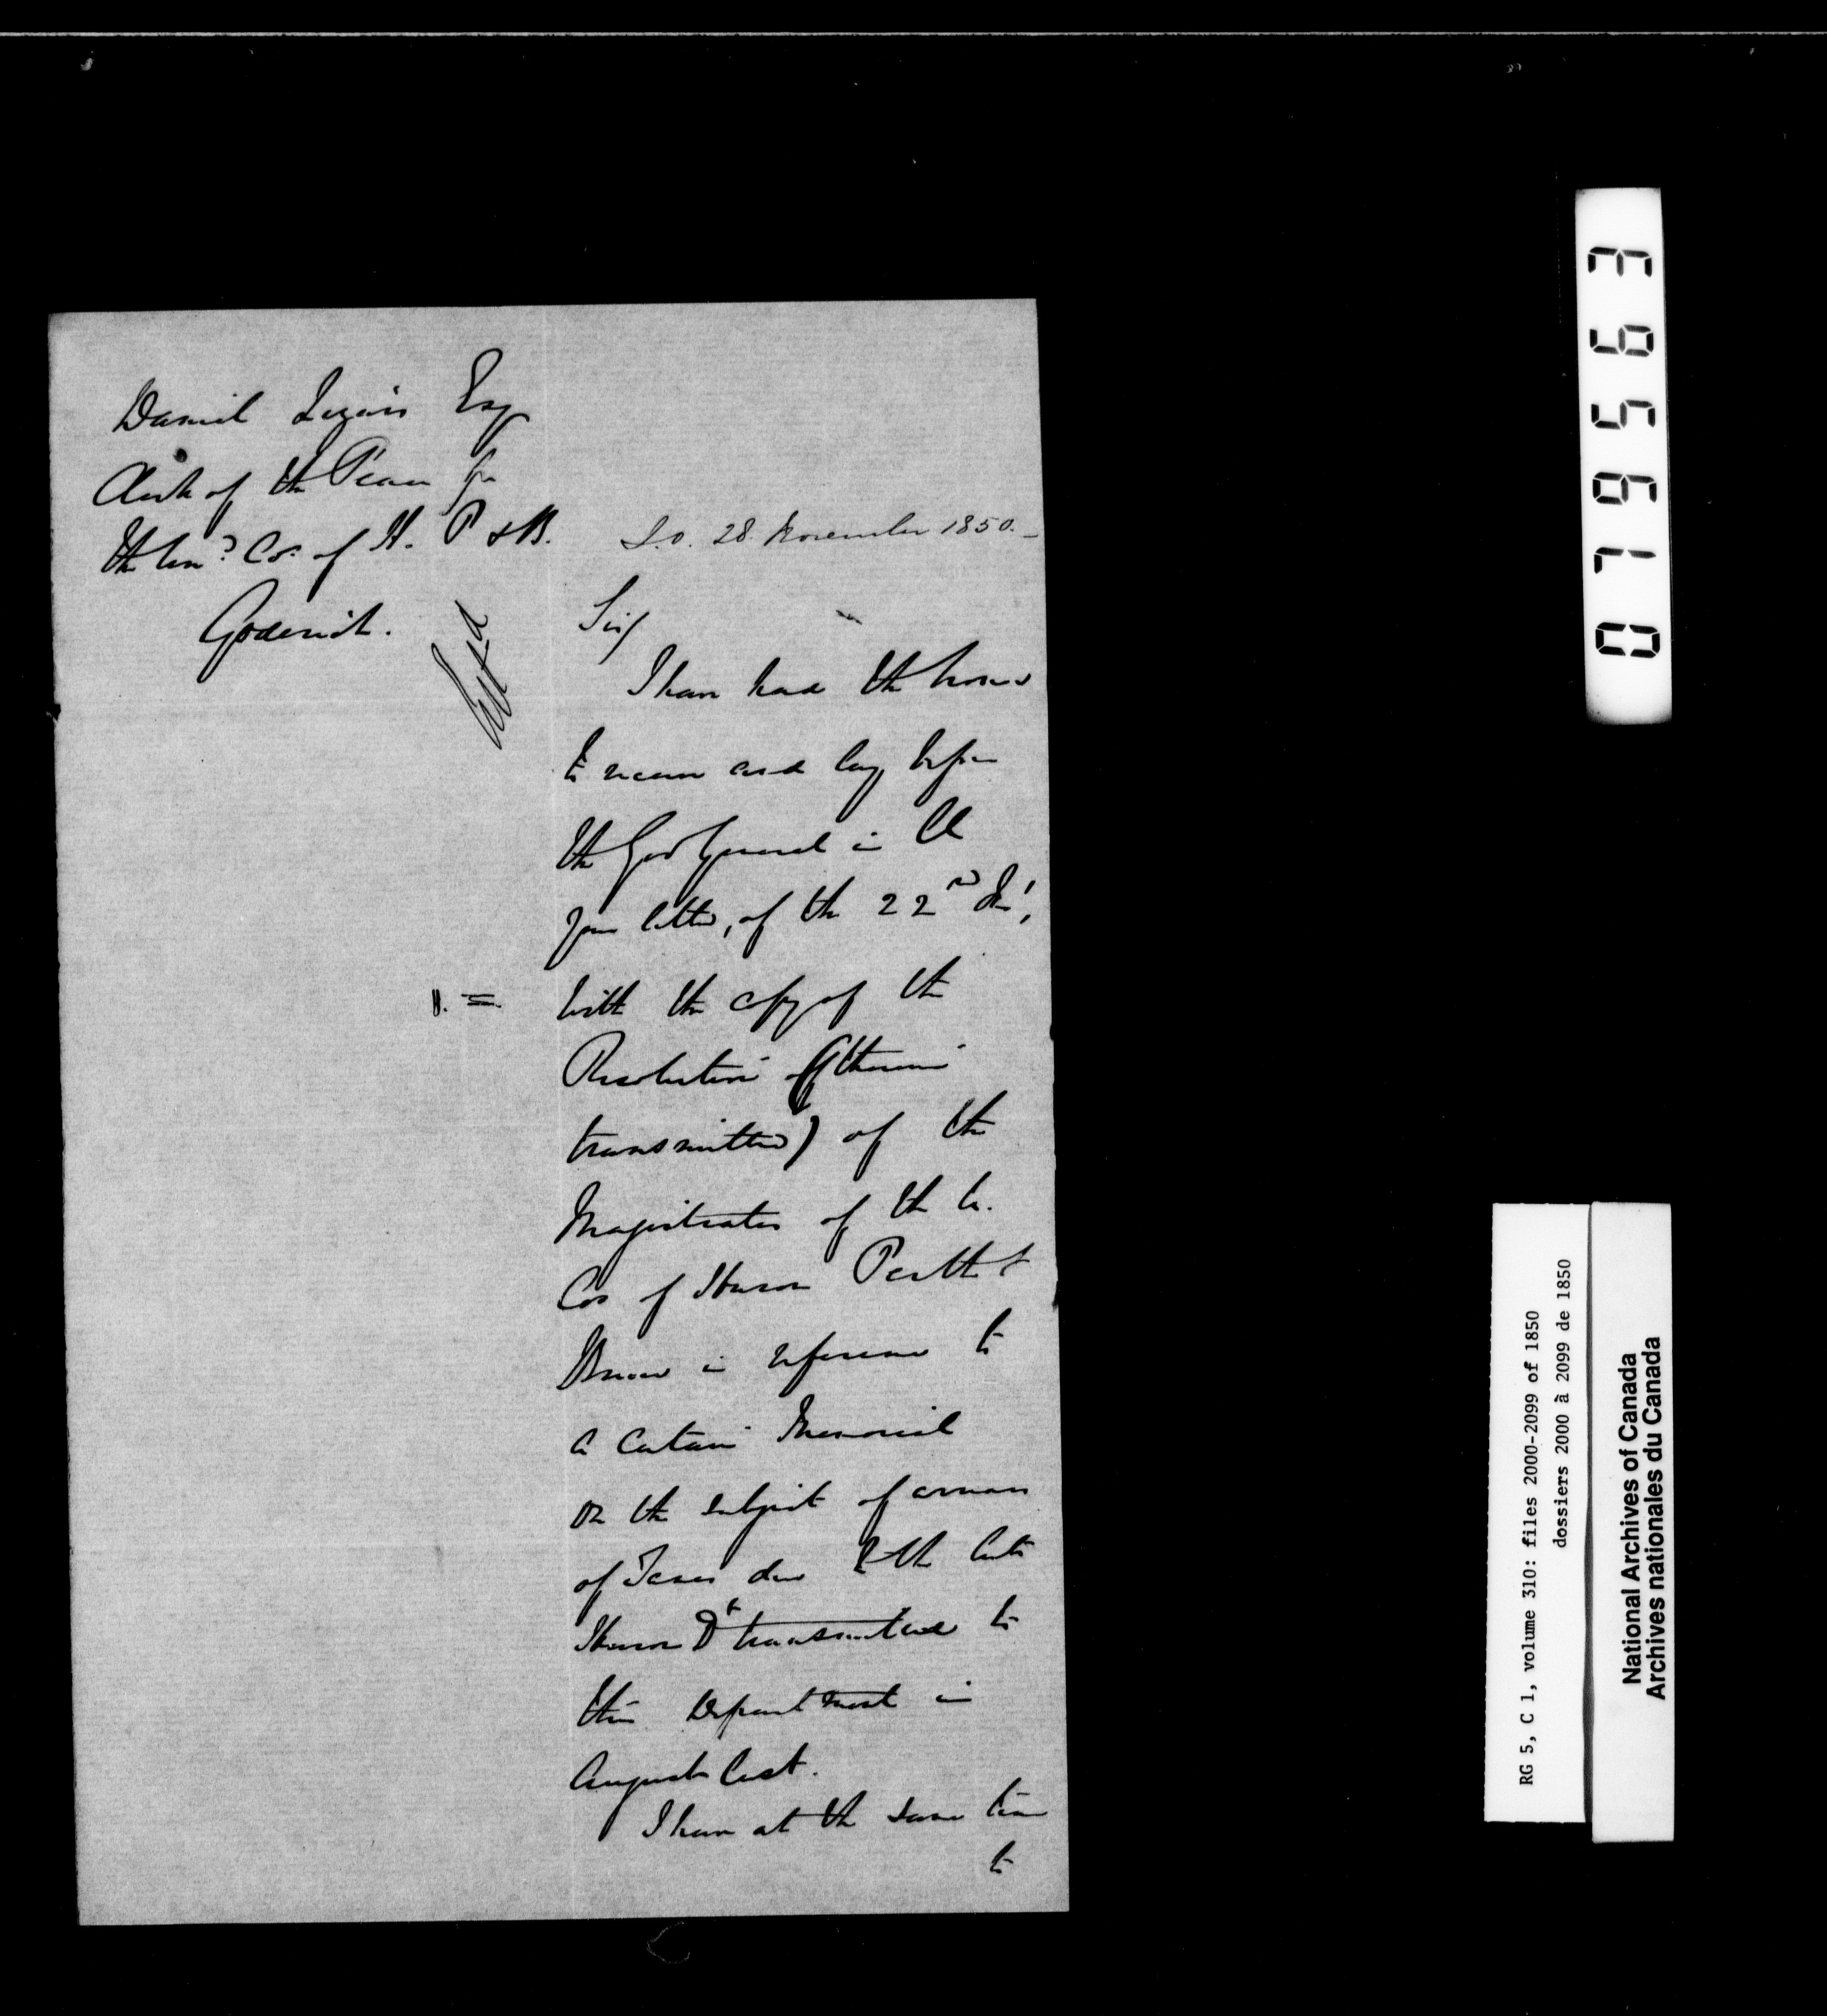 Daniel Lizars Esq
Clerk of the Peace for
the Un.d Cos. of H. P & B.
Goderich.
S.O. 28. November 1850.
Sir/
I have had the honor
to receive and lay before
the Gov General in Cl
your letter, of the 22nd
with the copy of the
Resolution (therein
transmitted) of the
Magistrates of the U.
Cos of Huron Perth &
Bruce in reference to
a certain Memorial
on the subject of arrears
of Taxes due the late
Huron Dt transmitted to
this Department in
August last.
I have at the same time
to
079563
RG 5, C 1, volume 310: files 2000-2099 of 1850
dossiers 2000 à 2099 de 1850
National Archives of Canada
Archives nationales du Canada